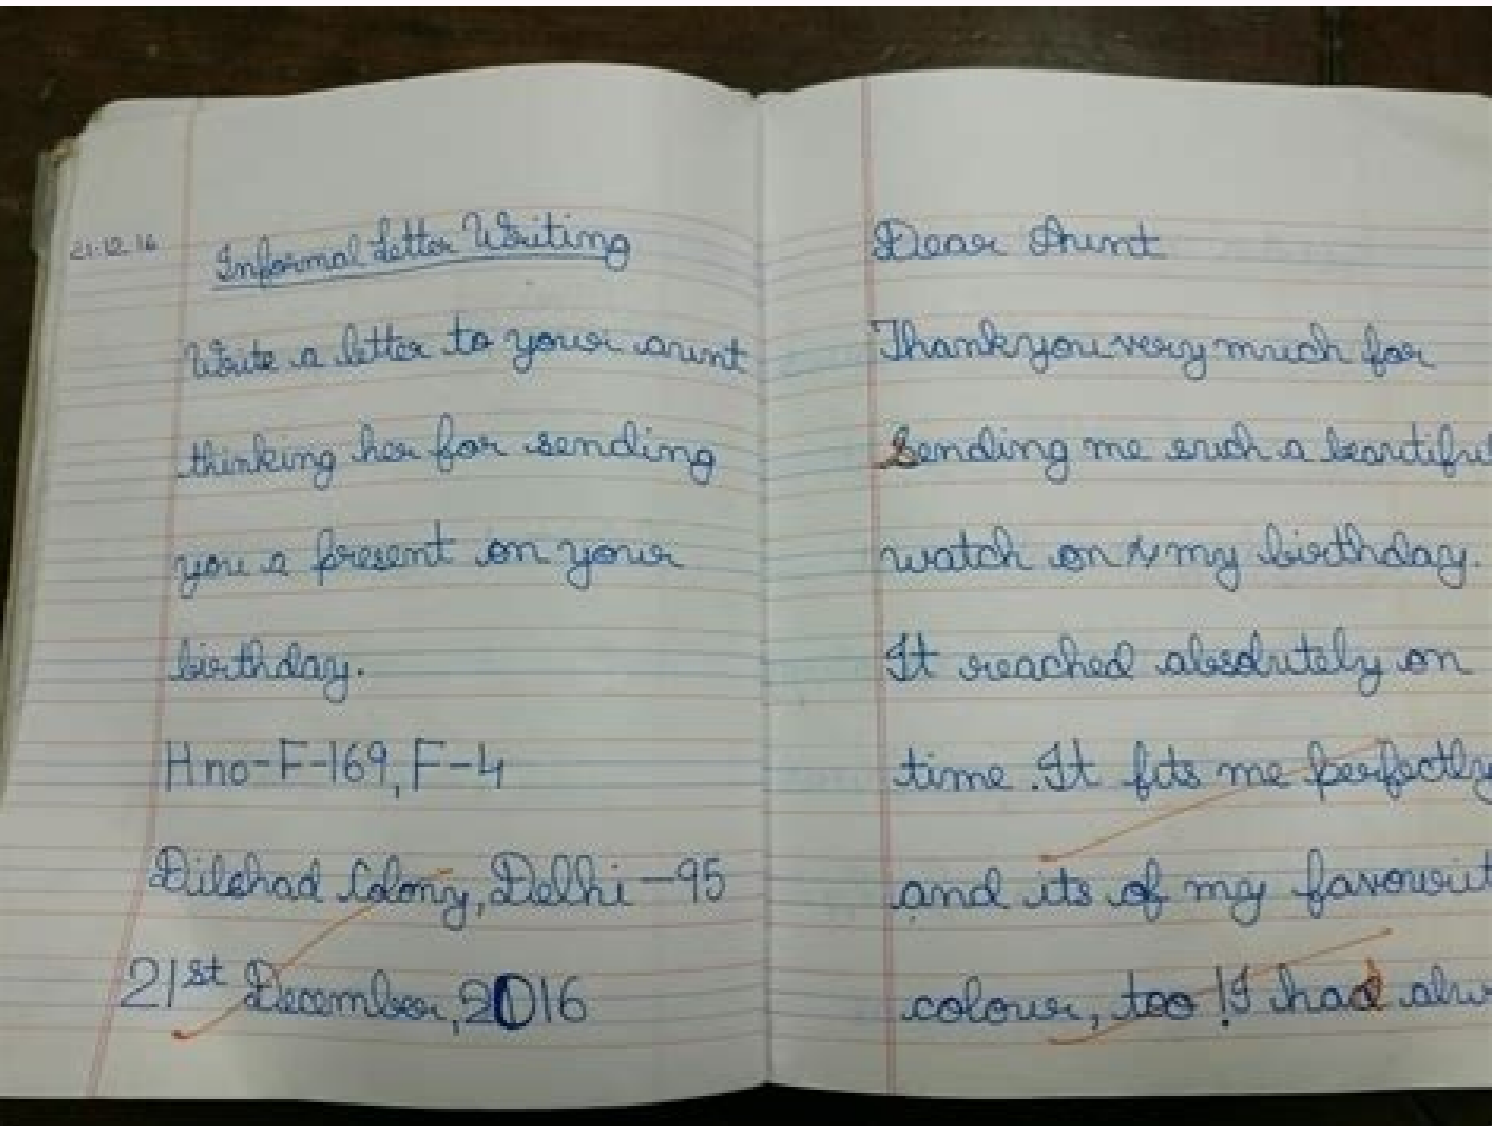 21.12.16
Informal Letter Writing
Write a letter to your aunt
thinking her for sending
you a present on your
birthday.
H no-F-169, F-4
Dilshad Colony, Delhi-95
21st December, 2016
Dear Aunt
Thank you very much for
Sending me such a beautiful
watch on my birthday.
It reached absolutely on
time. It fits me perfectly
and its of my favourit
colour, too! I had alw